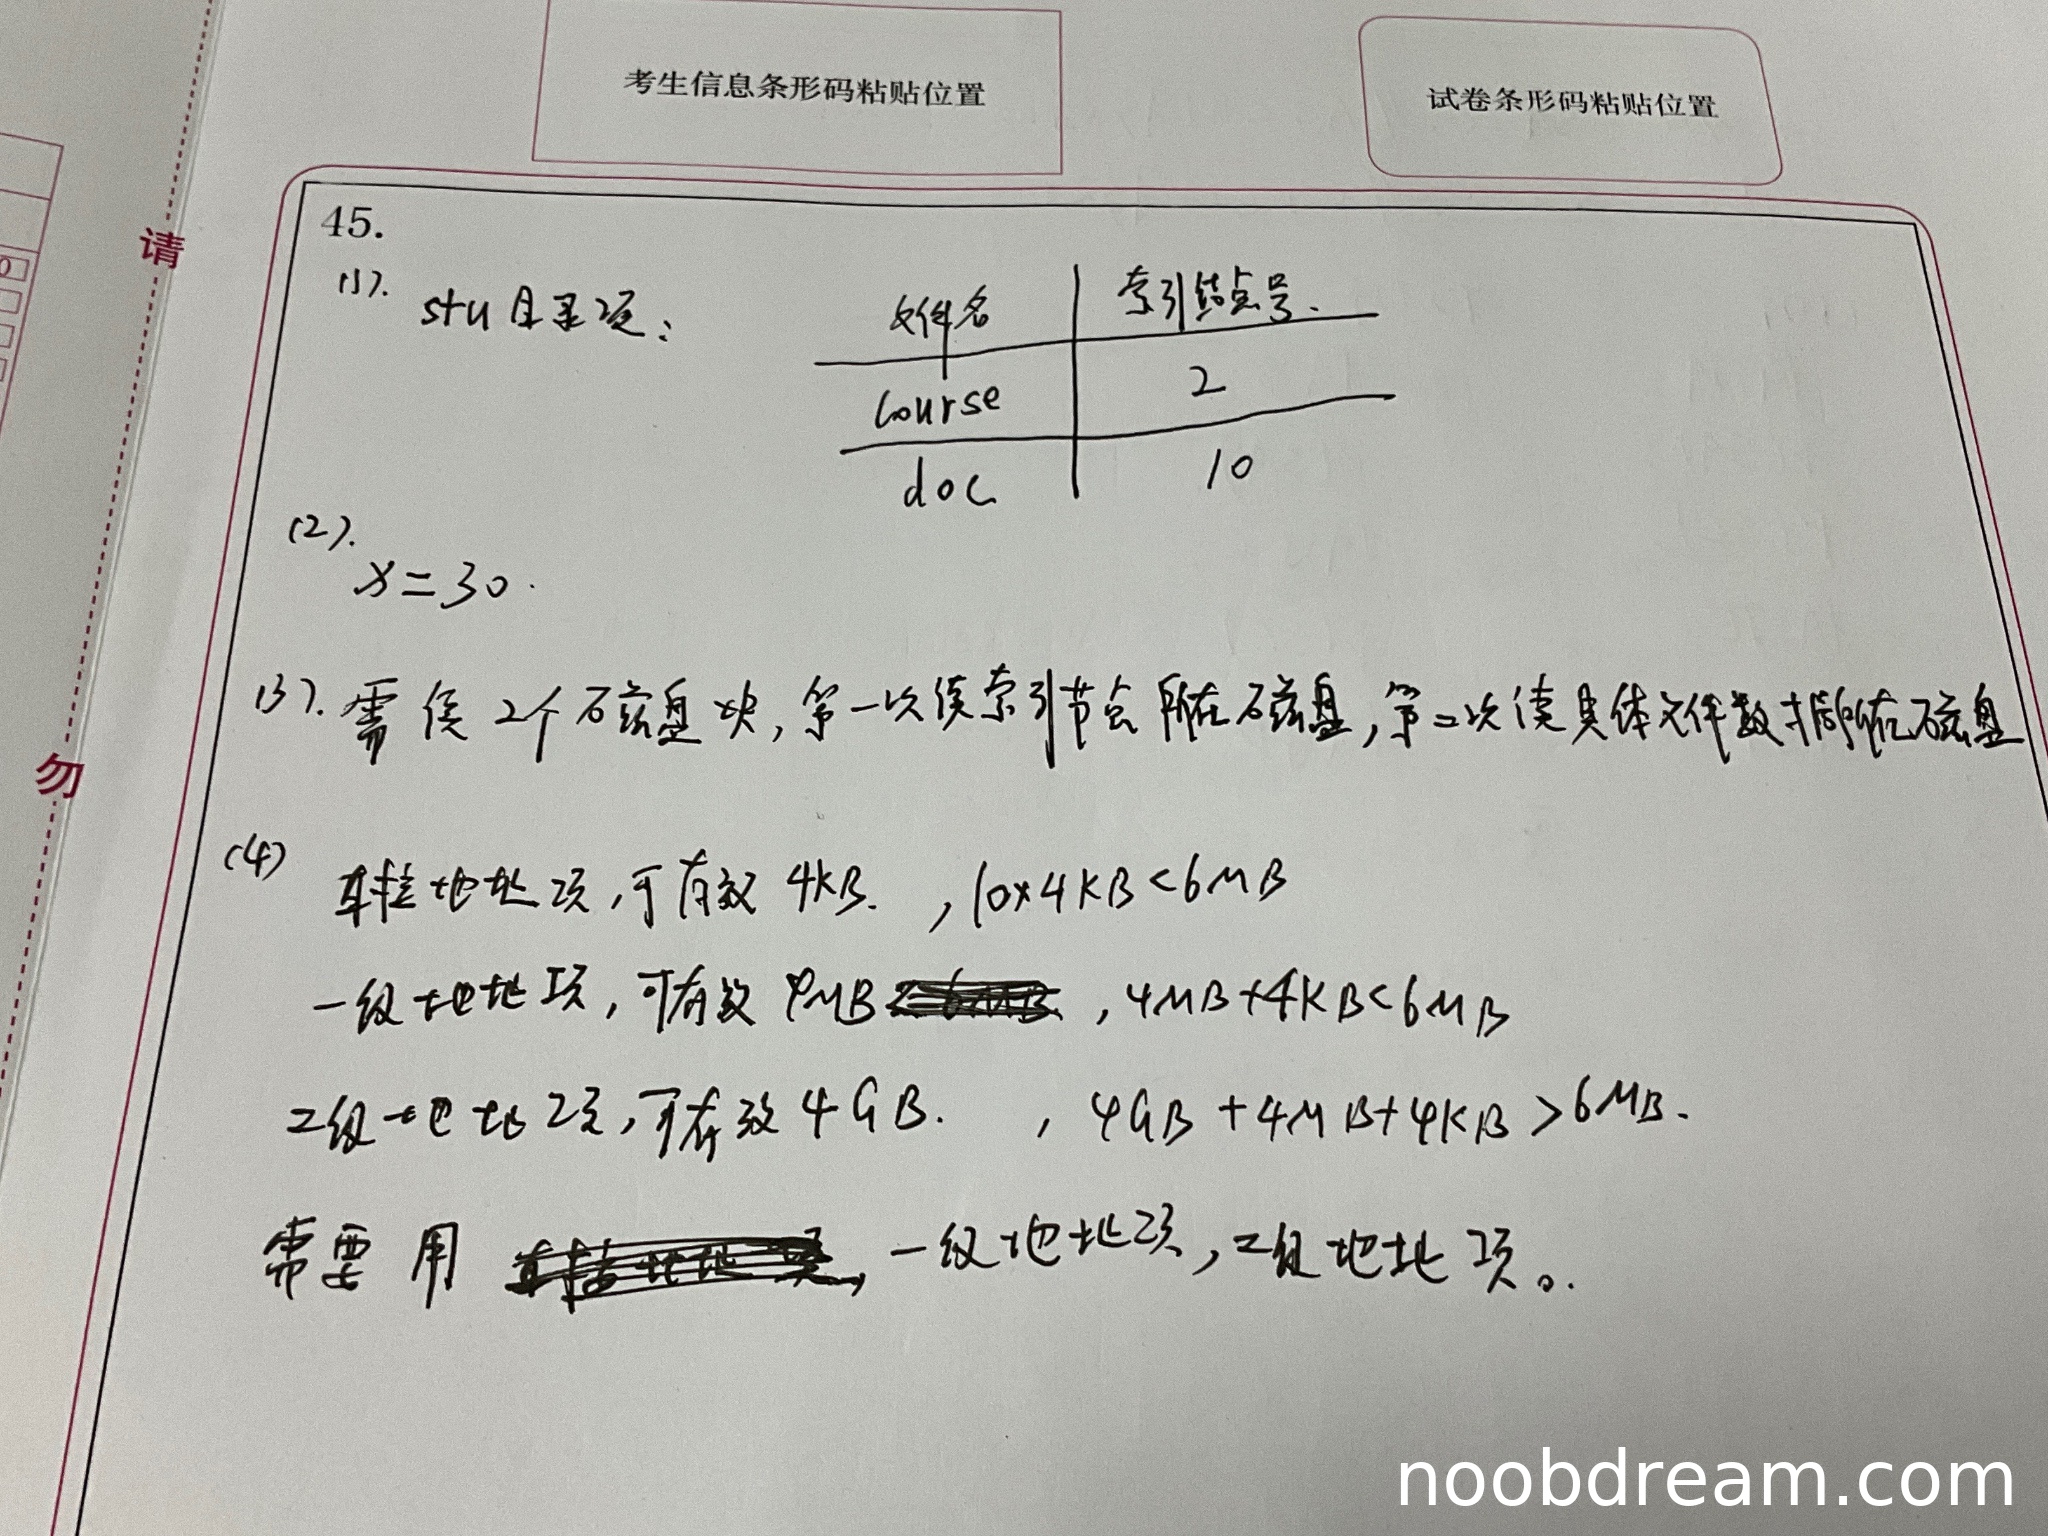 考生信息条形码粘贴位置
试卷条形码粘贴位置
请
勿
45.
(1).
stu目录项:
文件名 索引结点号.
course 2
doc 10
(2).
x=30.
(3). 需读2个磁盘块,第一次读索引节点所在磁盘,第二次读具体文件数据所在磁盘
(4) 直接地址项,可存放4KB. ,10×4KB<6MB
一级地址项,可存放4MB ,4MB+4KB<6MB
二级地址项,可存放4GB. ,4GB+4MB+4KB>6MB.
需要用 一级地址项,二级地址项。.
noobdream.com